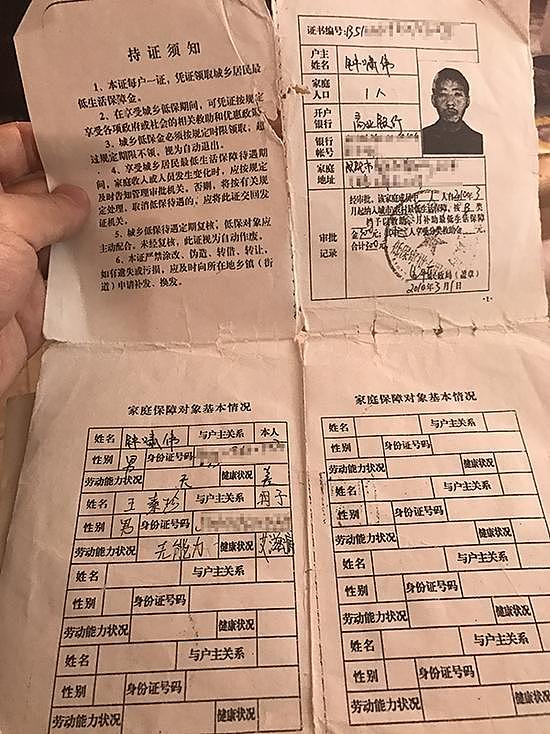 持证须知
1、本证每户一证，凭证领取城乡居民最
低生活保障金。
2、在享受城乡低保期间，可凭证按规定
享受各项政府或社会的相关救助和优惠政策
3、城乡低保金必须按规定时限领取，超
过规定期限不领，视为自动退出。
4、享受城乡居民最低生活保障待遇期
间，家庭收入或人员发生变化时，应按规定
及时告知管理审批机关。否则，将按有关规
定处理，取消低保待遇的，应将此证交回发
证机关。
5、城乡低保待遇定期复核，低保对象应
主动配合。未经复核，此证视为自动作废。
6、本证严禁涂改、伪造、转借、转让、
如有遗失或污损，应及时向所在地乡镇（街
道）申请补发、换发。
证书编号:
户主
姓名
伟
家庭
人口
1人
开户
银行
商业银行
银行
帐号
家庭
地址
市
审批
记录
经审批，该家庭成员中 人自2010年3
月起纳入城市
最低生活保障
合计 元
民政局（盖章）
2010年3月1日
-1-
家庭保障对象基本情况
姓名 伟 与户主关系 本人
性别 男 身份证号码
劳动能力状况 健康状况 差
姓名 王 与户主关系 母子
性别 男 身份证号码
劳动能力状况 无能力 健康状况
姓名 与户主关系
性别 身份证号码
劳动能力状况 健康状况
姓名 与户主关系
性别 身份证号码
劳动能力状况 健康状况
家庭保障对象基本情况
姓名 与户主关系
性别 身份证号码
劳动能力状况 健康状况
姓名 与户主关系
性别 身份证号码
劳动能力状况 健康状况
姓名 与户主关系
性别 身份证号码
劳动能力状况 健康状况
姓名 与户主关系
性别 身份证号码
劳动能力状况 健康状况